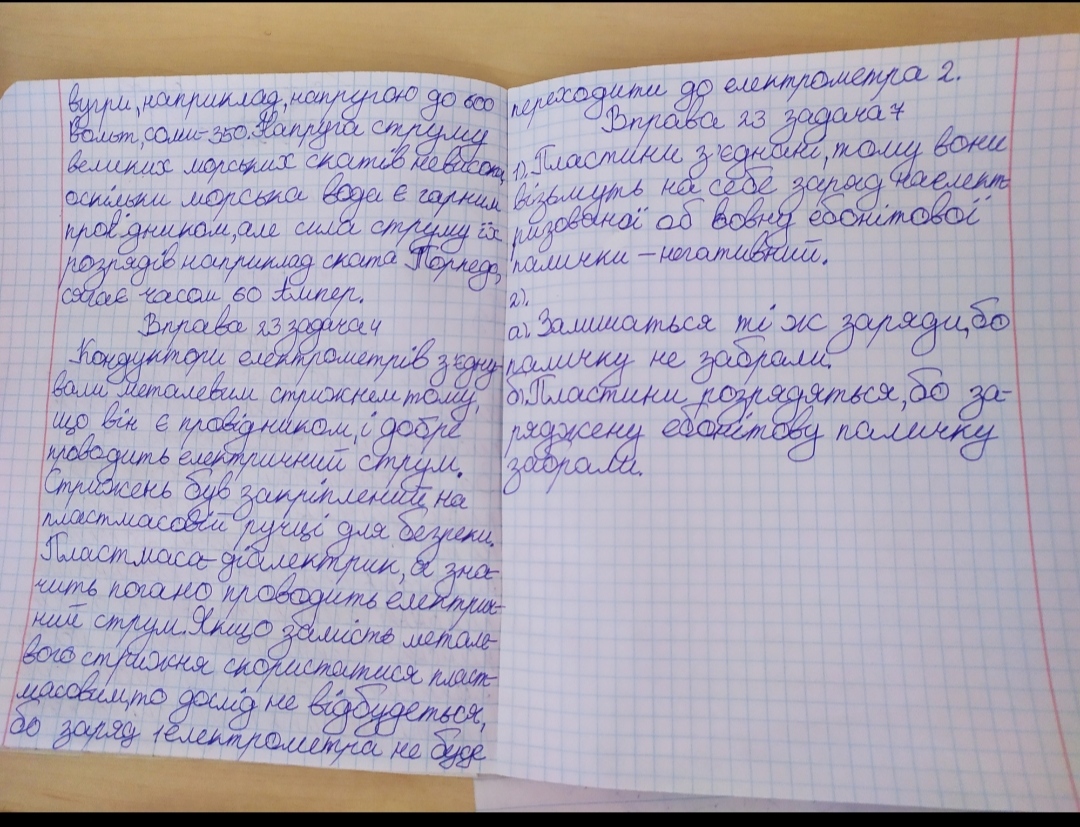 вугри, наприклад, напругою до 600
Вольт, соми-350. Напруга струму
великих морських скатів невисока,
оскільки морська вода є гарним
провідником, але сила струму їх
розрядів наприклад ската Торпедо,
сягає часом 60 Ампер.
Вправа 23 задача 4
Кондуктори електрометрів з'єдну-
вали металевим стрижнем тому,
що він є провідником, і добре
проводить електричний струм.
Стрижень був закріплений на
пластмасовій ручці для безпеки.
Пластмаса-діалектрик, а зна-
чить погано проводить електрич-
ний струм. Якщо замість метале-
вого стрижня скористатися пласт-
масовим, то дослід не відбудеться,
бо заряд 1 електрометра не буде
переходити до електрометра 2.
Вправа 23 задача 7
1). Пластини з'єднані, тому вони
візьмуть на себе заряд наелект-
ризованої об вовну ебонітової
палички - негативний.
2).
а). Залишаться ті ж заряди, бо
паличку не забрали.
б). Пластини розрядяться, бо за-
ряджену ебонітову паличку
забрали.